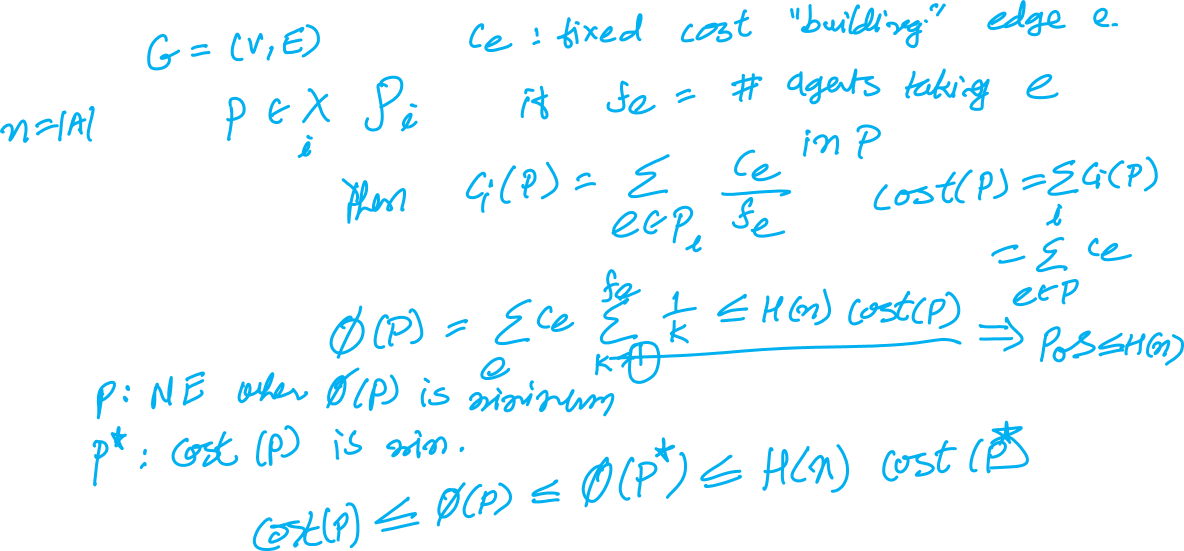 G = (V, E) Ce : fixed cost "building" edge e.
n=|A| P ∈ X_i P_i if fe = # agents taking e in P
then Ci(P) = Σ_{e∈P_i} Ce/fe cost(P) = Σ_i Ci(P)
= Σ_{e∈P} Ce
Ø(P) = Σ_e Ce Σ_{k=1}^{fe} 1/k ≤ H(n) cost(P) ⇒ PoS≤H(n)
P: NE when Ø(P) is minimum
P* : cost (P) is min.
cost(P) ≤ Ø(P) ≤ Ø(P*) ≤ H(n) cost (P*)